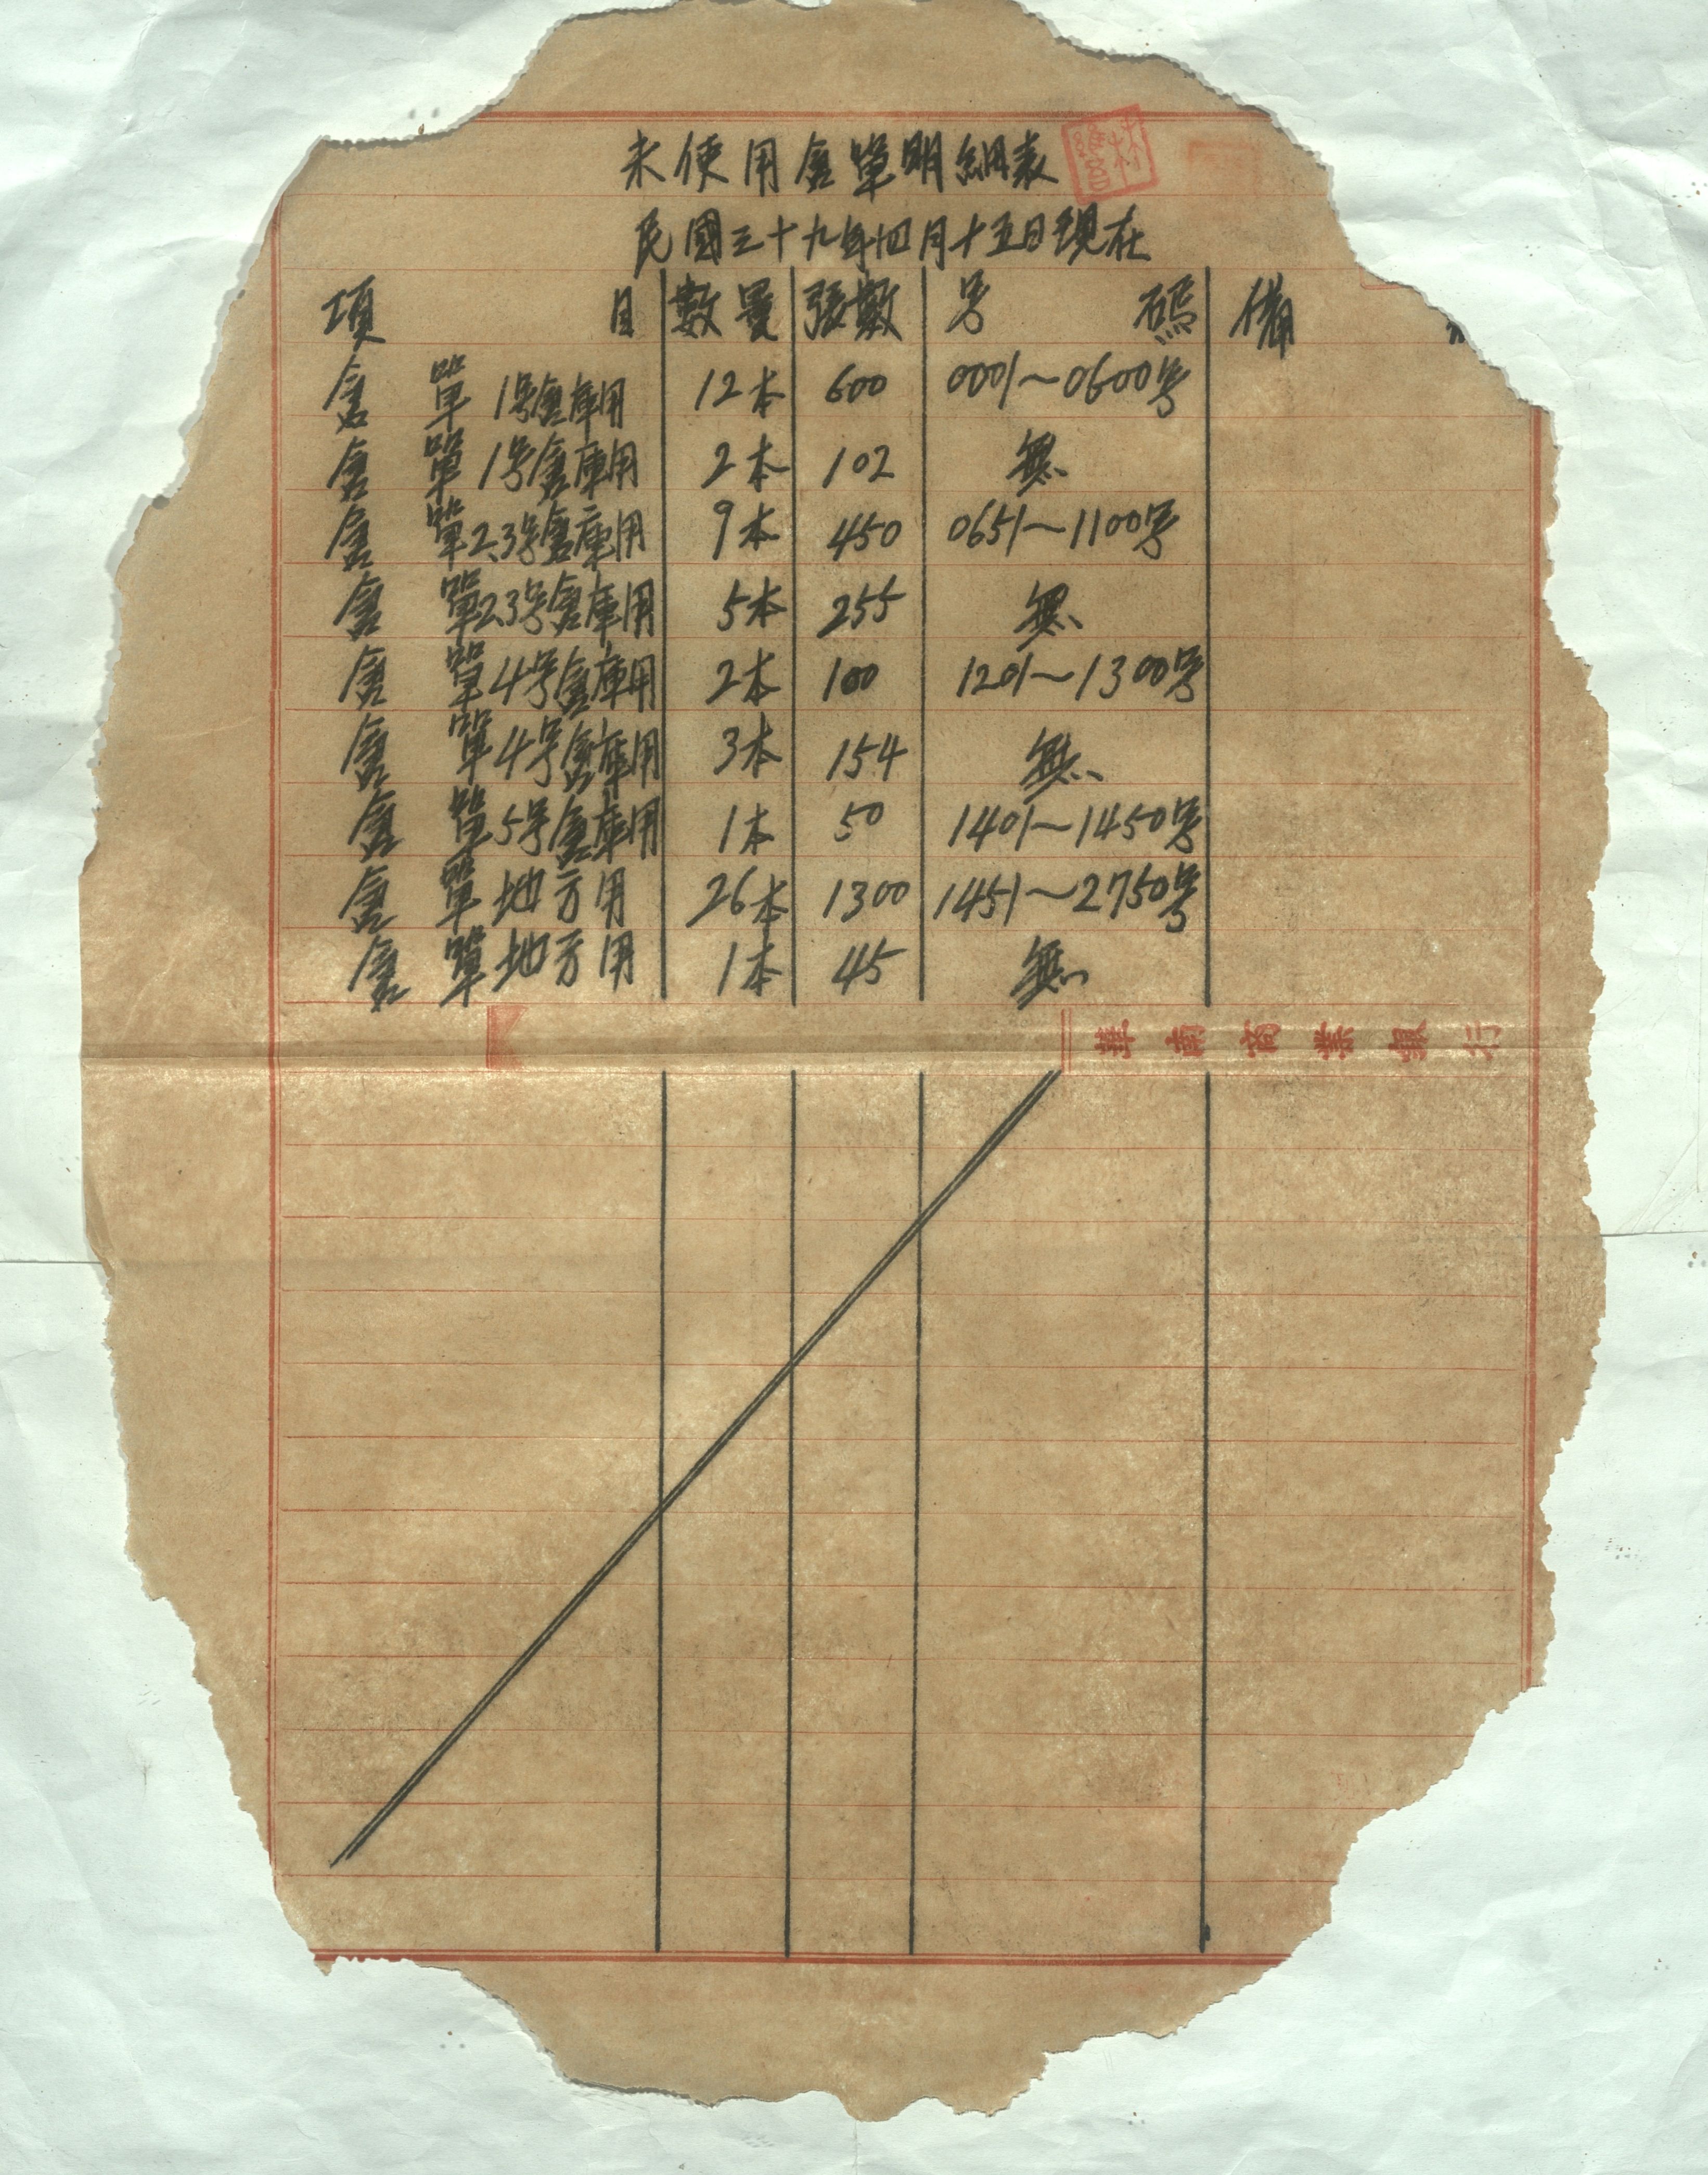 未使用倉單明細表
民國三十九年四月十五日現在
項目 數量 張數 号碼 備
倉單 1号倉庫用 12本 600 0001～0600号
倉單 1号倉庫用 2本 102 無
倉單 2.3号倉庫用 9本 450 0651～1100号
倉單 2.3号倉庫用 5本 255 無
倉單 4号倉庫用 2本 100 1201～1300号
倉單 4号倉庫用 3本 154 無
倉單 5号倉庫用 1本 50 1401～1450号
倉單 地方用 26本 1300 1451～2750号
倉單 地方用 1本 45 無
華南商業銀行